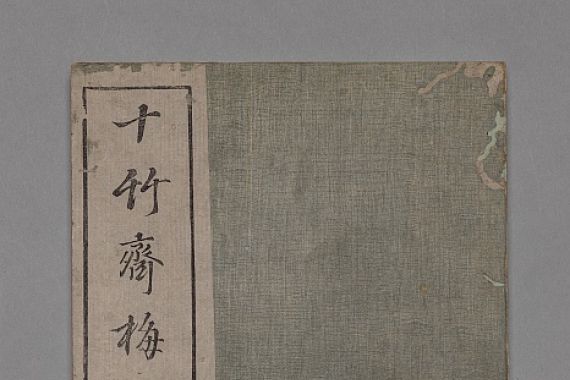 十竹齋梅